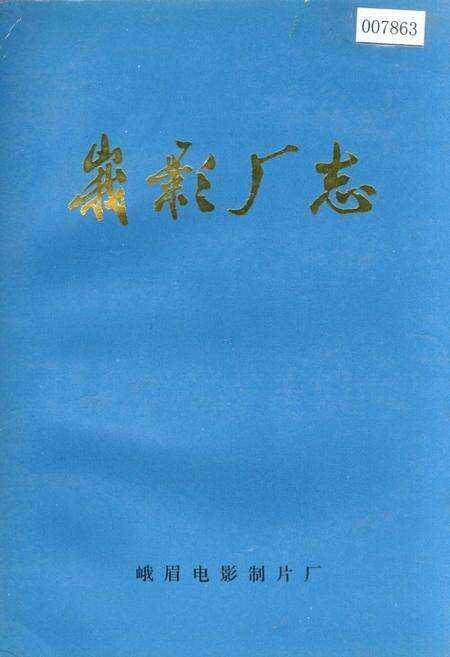 007863
峩影厂志
峨眉电影制片厂